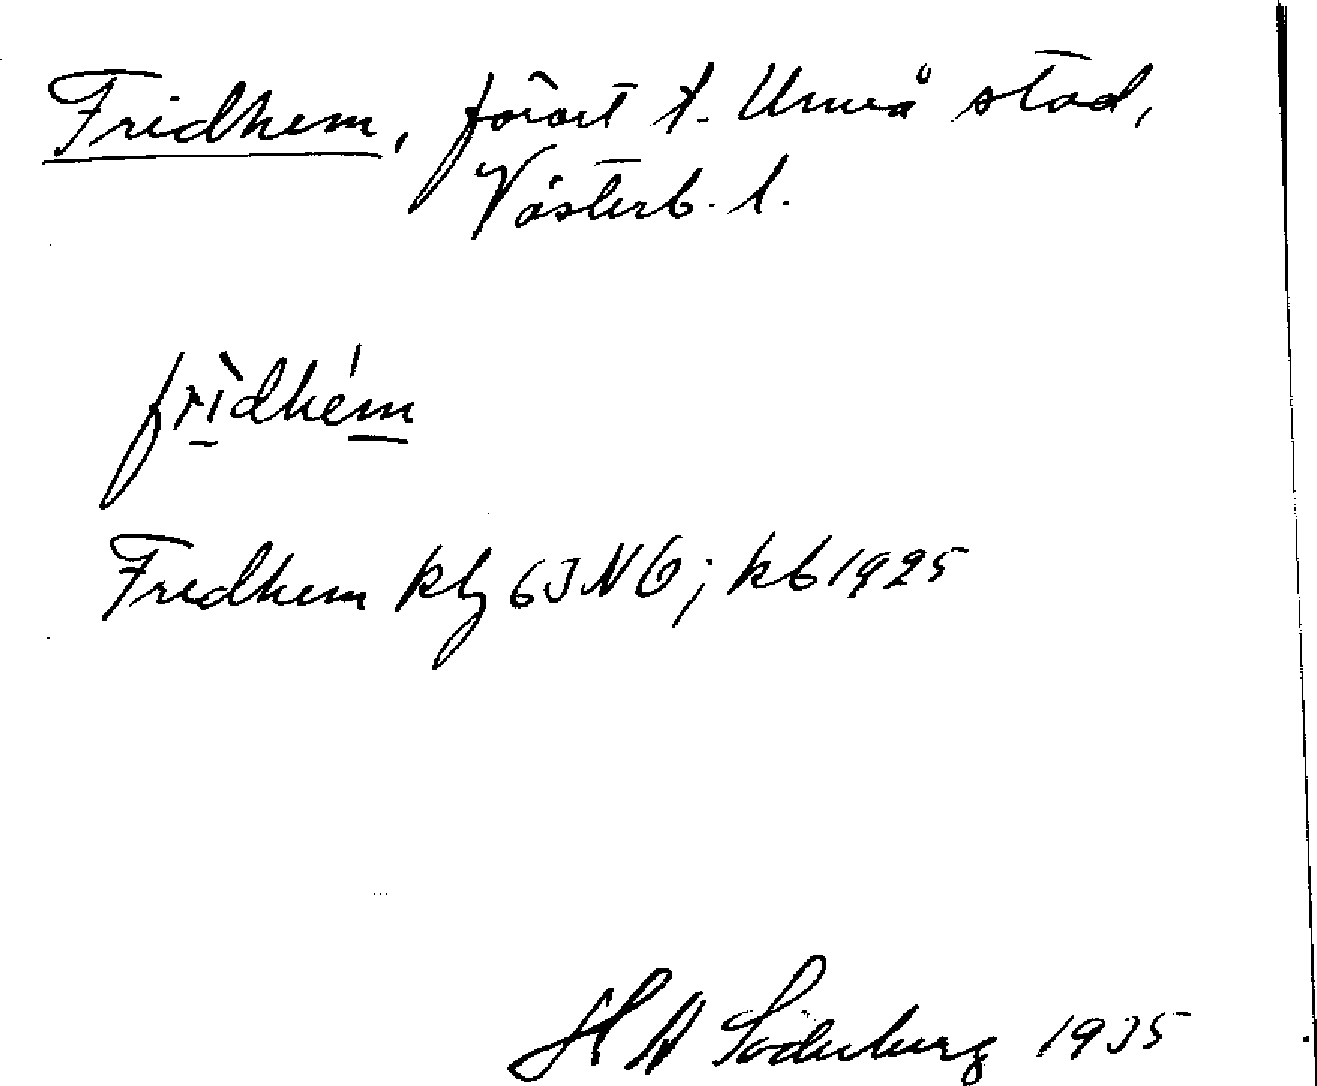 Fridhem, förort t. Umeå stad,
Västerb. l.
frìdhém
Fridhem kbg 63 NO; kb 1925
H A Söderberg 1935